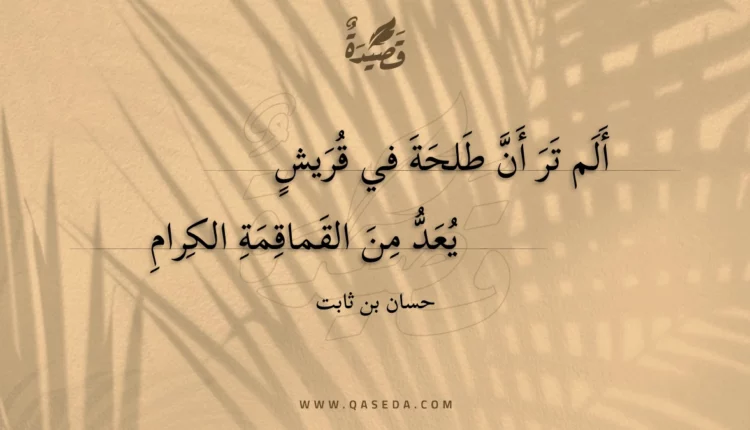 قَصِيدَةٌ
أَلَم تَرَ أَنَّ طَلحَةَ في قُرَيشٍ
يُعَدُّ مِنَ القَماقِمَةِ الكِرامِ
حسان بن ثابت
WWW.QASEDA.COM